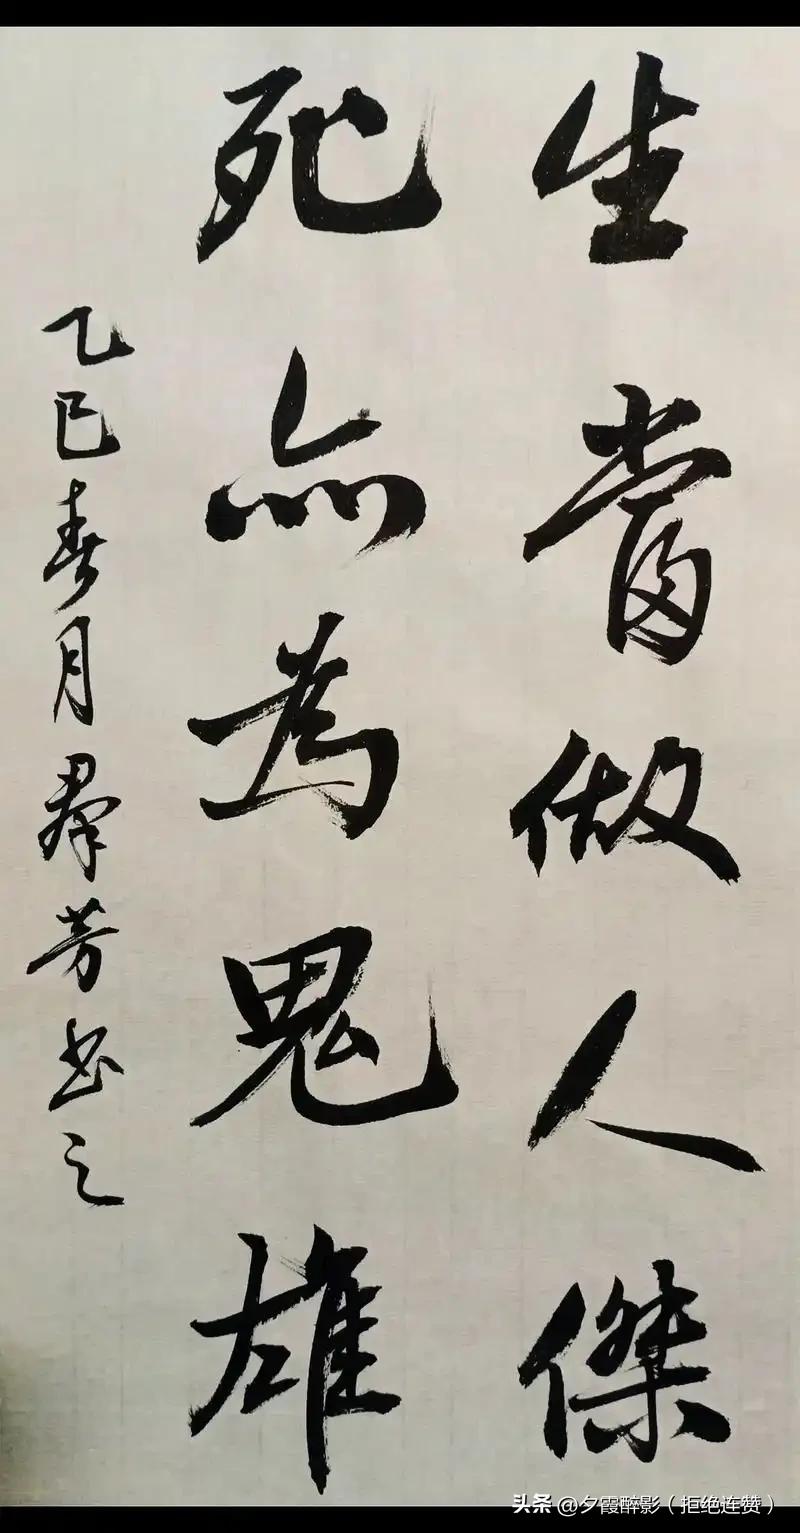 生當做人傑
死亦為鬼雄
乙巳春月群芳书之
头条 @夕霞醉影（拒绝连赞）